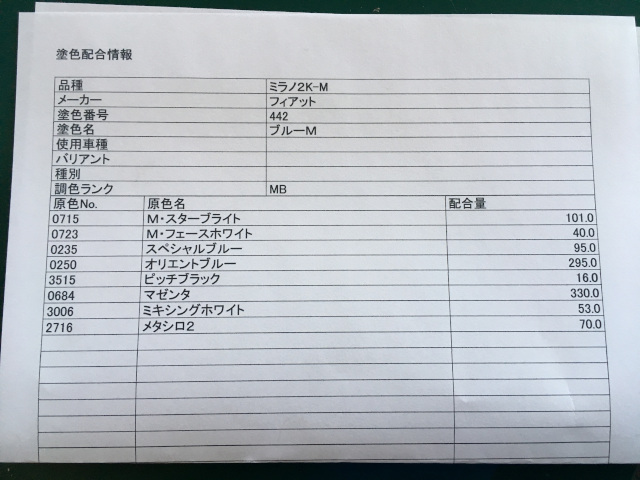 塗色配合情報
品種 ミラノ2K-M
メーカー フィアット
塗色番号 442
塗色名 ブルーM
使用車種
バリアント
種別
調色ランク MB
原色No. 原色名 配合量
0715 M・スターブライト 101.0
0723 M・フェースホワイト 40.0
0235 スペシャルブルー 95.0
0250 オリエントブルー 295.0
3515 ピッチブラック 16.0
0684 マゼンタ 330.0
3006 ミキシングホワイト 53.0
2716 メタシロ2 70.0